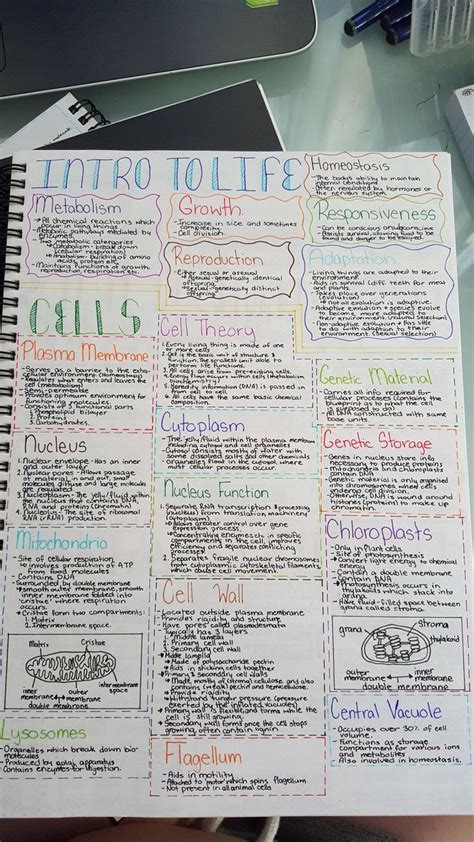 INTRO TO LIFE
Homeostasis
- The body's ability to maintain
internal conditions.
- Often regulated by hormones or
the nervous system
Metabolism
→ All chemical reactions which
occur in living things
- Metabolic pathways mediated by
enzymes.
- Two metabolic categories
Catabolism - break down
(cellular respiration)
→ Anabolism - building of amino
acids, protein etc.
- Maintains functions of growth
reproduction respiration etc.
Growth
- Increase in size and sometimes
complexity.
- Cell division.
Reproduction
- Either sexual or asexual
→ Asexual - genetically identical
offspring
→ Sexual - genetically distinct
offspring
Responsiveness
- Can be conscious or subconscious
found and danger to be enjoyed
Adaptation
- Living things are adapted to their
environment.
- Aids in survival (diff. teeth for meat
and plants.
- Takes place over generations
(evolution)
→ not all evolution is adaptive.
- Adaptive evolution = species evolve
to become more adapted to
their environment (natural selection)
- Non-adaptive evolution = has little
to do with adaptation to their
environment. (sexual selection)
CELLS
Plasma Membrane
- Serves as a barrier to the extra-
cellular environment (homeostasis)
- Regulates what enters and leaves the
cell (metabolism)
- Semi-permeable
- Provides optimum environment for
functioning molecules
- Generally 3 functional parts
1. Phospholipid Bilayer
2. Proteins
3. Carbohydrates.
Cell Theory
1. Every living thing is made of one
or more cells
2. Cell is the basic unit of structure &
function. The smallest unit able to
perform life functions.
3. All cells arise from pre-existing cells.
4. Energy flow occurs in cells (metabolism
biochemistry)
5. Heredity information (DNA) is passed on
from cell to cell
6. All cells have the same basic chemical
composition.
Genetic Material
- Carries all info required for
cellular processes (contains the
blueprint as to what the cell
is supposed to do)
- All DNA constructed with same
base units
Nucleus
1. Nuclear envelope - Has an inner
and outer layer
2. Nuclear pores - Allows passage
of material in and out, small
molecules diffuse and large molecule
are regulated.
3. Nucleoplasm - The jelly/fluid within
the nucleus that contains DNA,
RNA and proteins (chromatin)
4. Nucleolus - The site of ribosomal
RNA (rRNA) production
Cytoplasm
- The jelly/fluid within the plasma membrane
including cytosol and cell organelles
- Cytosol consists mostly of water with
some dissolved salts and other chemicals
- Organelles float in the cytosol where
most cellular processes occur.
Genetic Storage
- Genes in nucleus store info
necessary to produce proteins
- Mitochondria and chloroplasts
contain DNA
- Genetic material is only organised
into chromosomes when cells
undergo cell division.
- Otherwise, DNA is wound around
histones (proteins) to make up
chromatin.
Nucleus Function
1. Separates RNA transcription & processing
(nucleus) from translation machinery
(cytoplasm)
→ Allows greater control over gene
expression process.
→ Concentrating enzymes in specific
compartments in the cell, improves
efficiency and separates conflicting
processes
2. Separates fragile nuclear chromosomes
from cytoplasmic cytoskeletal filaments
which cause movement.
Mitochondria
- Site of cellular respiration
↳ involves production of ATP
from food molecules
- Contains DNA
- Surrounded by double membrane
→ Smooth outer membrane, smooth
inner membrane folded into
'cristae' where respiration
occurs
- Cristae form two compartments:
1. Matrix
2. Intermembrane space.
Matrix Cristae
outer membrane
inner membrane
intermembrane space
double membrane
Cell Wall
- Located outside plasma membrane
- Provides rigidity and structure
- Have 'pores' called plasmodesmata
- Typically has 3 layers
1. Middle lamella
2. Primary cell wall
3. Secondary cell wall
- Middle lamella
→ Made of polysaccharide pectin
→ Aids in sticking cells together
- Primary & secondary cell walls
→ Made mostly of strong cellulose, and also
contains (weak) pectin and hemicellulose.
→ Provide rigidity
→ Withstand turgor pressure (pressure
exerted by the inflated vacuole)
- Primary wall is flexible and forms while the
cell is still growing.
- Secondary wall forms once the cell stops
growing, often contain lignin
Chloroplasts
- Only in Plant cells
- Site of photosynthesis
→ Convert light energy to chemical
energy.
- Contain a double membrane
- Contain DNA
- Photosynthesis occurs in
thylakoids which stack into
'grana'
- Have fluid-filled space between
grana called stroma.
grana
stroma
thylakoid
outer membrane
inner membrane
double membrane
Lysosomes
- Organelles which break down bio-
molecules
- Produced by golgi apparatus
- Contains enzymes for digestion.
Flagellum
- Aids in motility
- Attached to motor which spins flagellum
- Not present in all animal cells
Central Vacuole
- Occupies over 30% of cell
volume.
- Functions as storage
compartment for various ions
and metabolites
- Also involved in homeostasis.